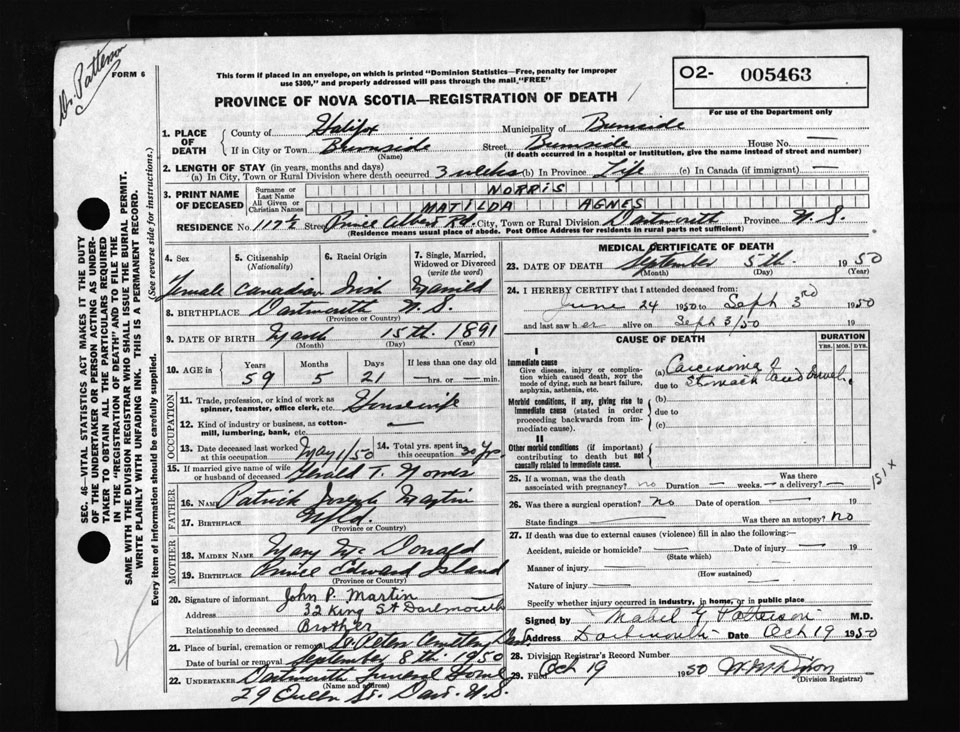 Dr. Patterson
FORM 6
This form if placed in an envelope, on which is printed "Dominion Statistics—Free, penalty for improper
use $300," and properly addressed will pass through the mail, "FREE"
O2- 005463
For use of the Department only
PROVINCE OF NOVA SCOTIA—REGISTRATION OF DEATH
1. PLACE OF DEATH
County of Halifox Municipality of Burnside
If in City or Town Burnside Burnside House No. —
(Name) (If death occurred in a hospital or institution, give the name instead of street and number)
2. LENGTH OF STAY (in years, months and days)
(a) In City, Town or Rural Division where death occurred 3 weeks (b) In Province Life (c) In Canada (if immigrant) —
3. PRINT NAME OF DECEASED
Surname or Last Name NORRIS
All Given or Christian Names MATILDA AGNES
RESIDENCE No. 117½ Street Prince Albert Rd. City, Town or Rural Division Dartmouth Province N.S.
(Residence means usual place of abode. Post Office Address for residents in rural parts not sufficient)
4. Sex 5. Citizenship (Nationality) 6. Racial Origin 7. Single, Married, Widowed or Divorced (write the word)
Female Canadian Irish Married
8. BIRTHPLACE Dartmouth N.S.
(Province or Country)
9. DATE OF BIRTH March 15th. 1891
(Month) (Day) (Year)
10. AGE in Years Months Days If less than one day old
59 5 21 — hrs. or — min.
OCCUPATION
11. Trade, profession or kind of work as
spinner, teamster, office clerk, etc. Housewife
12. Kind of industry or business, as cotton-
mill, lumbering, bank, etc. —
13. Date deceased last worked at this occupation May 1/50 14. Total yrs. spent in this occupation 30 Yrs
15. If married give name of wife or husband of deceased Gerald T. Norris
FATHER
16. NAME Patrick Joseph Martin
17. BIRTHPLACE Nfld.
(Province or Country)
MOTHER
18. MAIDEN NAME Mary McDonald
19. BIRTHPLACE Prince Edward Island
(Province or Country)
20. Signature of informant John P. Martin
Address 32 King St Dartmouth
Relationship to deceased Brother
21. Place of burial, cremation or removal St. Peters Cemetery Dart.
Date of burial or removal September 8th. 1950
22. UNDERTAKER Dartmouth Funeral Home
(Name and address)
29 Queen St. Dart. N.S.
MEDICAL CERTIFICATE OF DEATH
23. DATE OF DEATH September 5th. 1950
(Month) (Day) (Year)
24. I HEREBY CERTIFY that I attended deceased from:
June 24 1950 to Sept 3rd 1950
and last saw her alive on Sept 3/50 19
CAUSE OF DEATH DURATION
YRS. MOS. DYS.
I
Immediate cause
Give disease, injury or complication which caused death, nor the mode of dying, such as heart failure, asphyxia, asthenia, etc.
(a) Carcinoma of
due to Stomach and Bowel.
Morbid conditions, if any, giving rise to immediate cause (stated in order proceeding backwards from immediate cause).
(b)
due to
(c)
II
Other morbid conditions (if important) contributing to death but not causally related to immediate cause.
25. If a woman, was the death associated with pregnancy? no Duration — weeks — Was there a delivery? —
151 x
26. Was there a surgical operation? no Date of operation — 19
State findings — Was there an autopsy? no
27. If death was due to external causes (violence) fill in also the following:—
Accident, suicide or homicide? — Date of injury — 19
(State which)
Manner of injury —
(How sustained)
Nature of injury —
Specify whether injury occurred in industry, in home, or in public place
Signed by Mabel G Patterson M.D.
Address Dartmouth Date Oct 19 1950
28. Division Registrar's Record Number
29. Filed Oct 19 1950
(Division Registrar)
SEC. 46—VITAL STATISTICS ACT MAKES IT THE DUTY
OF THE UNDERTAKER OR PERSON ACTING AS UNDER-
TAKER TO OBTAIN ALL THE PARTICULARS REQUIRED
IN THE "REGISTRATION OF DEATH" AND TO FILE THE
SAME WITH THE DIVISION REGISTRAR WHO SHALL ISSUE THE BURIAL PERMIT.
WRITE PLAINLY WITH UNFADING INK. THIS IS A PERMANENT RECORD.
Every item of information should be carefully supplied. (See reverse side for instructions.)